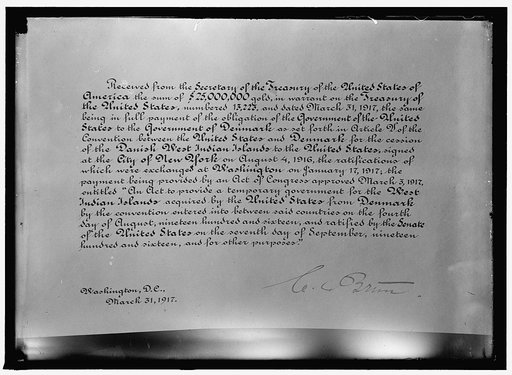 Received from the Secretary of the Treasury of the United States of
America the sum of $25,000,000 gold, in warrant on the Treasury of
the United States, numbered 13,223, and dated March 31, 1917, the same
being in full payment of the obligation of the Government of the United
States to the Government of Denmark as set forth in Article V of the
Convention between the United States and Denmark for the cession
of the Danish West Indian Islands to the United States, signed
at the City of New York on August 4, 1916, the ratifications of
which were exchanged at Washington on January 17, 1917, the
payment being provided by an Act of Congress approved March 3, 1917,
entitled "An Act to provide a temporary government for the West
Indian Islands acquired by the United States from Denmark
by the convention entered into between said countries on the fourth
day of August, nineteen hundred and sixteen, and ratified by the Senate
of the United States on the seventh day of September, nineteen
hundred and sixteen, and for other purposes."
Washington, D.C.,
March 31, 1917.
C. Brun